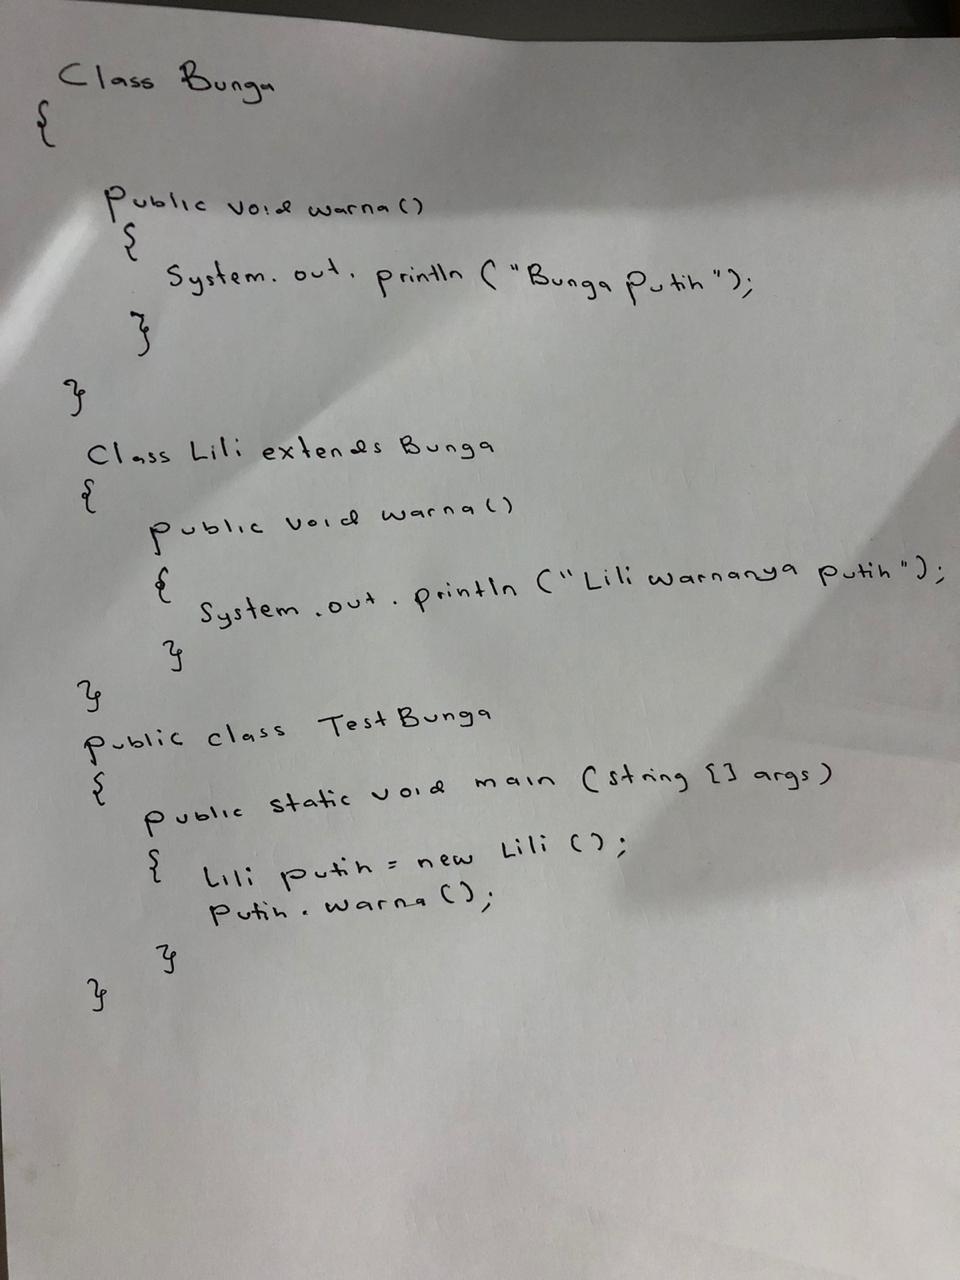 Class Bunga
{
public void warna()
{
System. out. println ("Bunga Putih");
}
}
Class Lili extends Bunga
{
public void warna()
{
System .out. println ("Lili warnanya putih");
}
}
public class TestBunga
{
public static void main (string [] args)
{ Lili putih = new Lili ();
putih. warna();
}
}